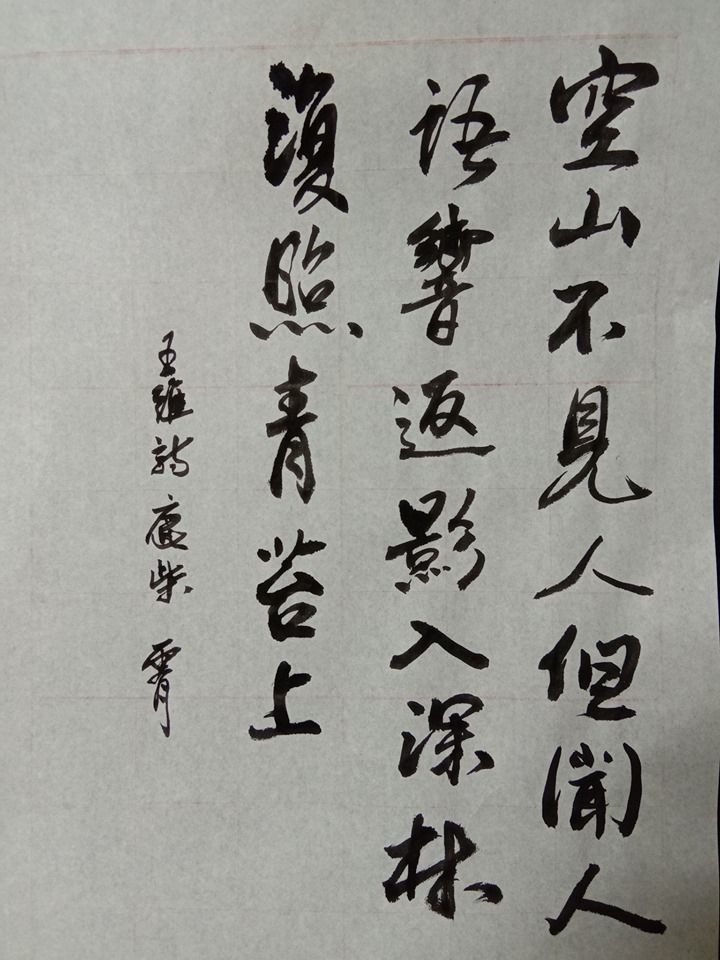 空山不見人但聞人
語響返影入深林
復照青苔上
王維詩鹿柴 霄